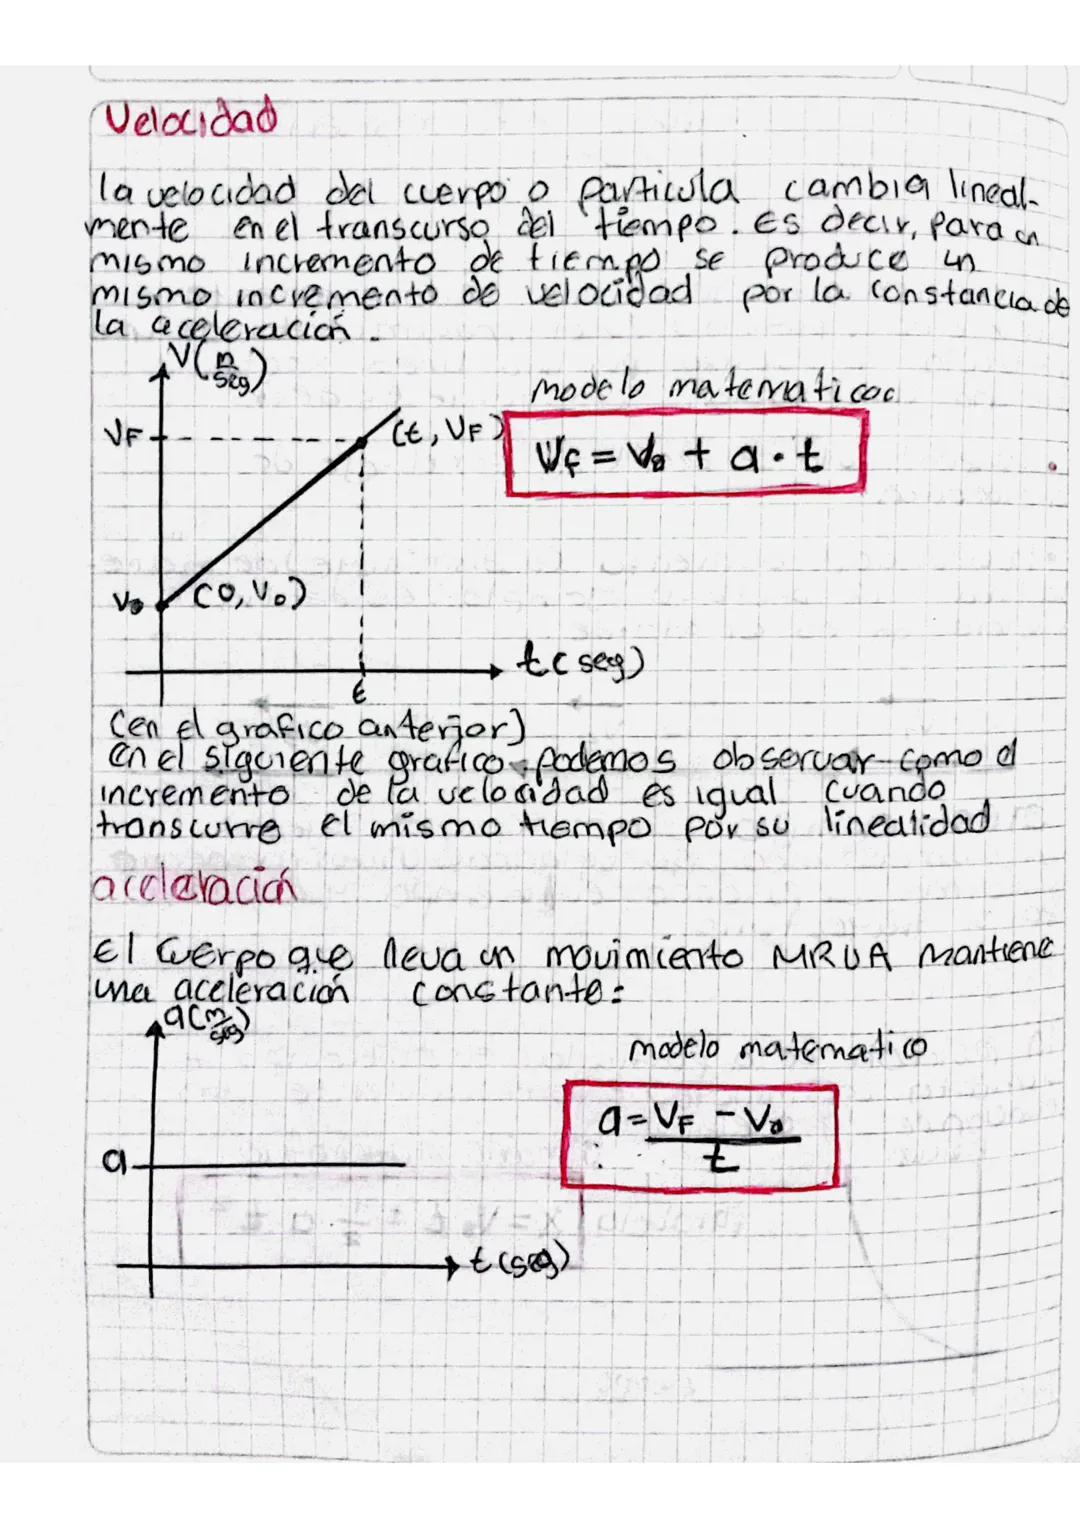 Velocidad
la velocidad del cuerpo o particula cambia lineal-
mente en el transcurso del tiempo. Es decir, para un
mismo incremento de tiempo se produce un
mismo incremento de velocidad por la constancia de
la aceleración.
V(m/seg)
modelo matematico
VF
(t, VF)
VF = V0 + a · t
V0
(0, V0)
t(seg)
t
(en el grafico anterior)
en el siguiente grafico podemos observar como el
incremento de la velocidad es igual cuando
transcurre el mismo tiempo por su linealidad
aceleración
El cuerpo que lleva un movimiento MRUA mantiene
una aceleración constante:
a(m/seg)
modelo matematico
a = VF - V0
t
a
t(seg)